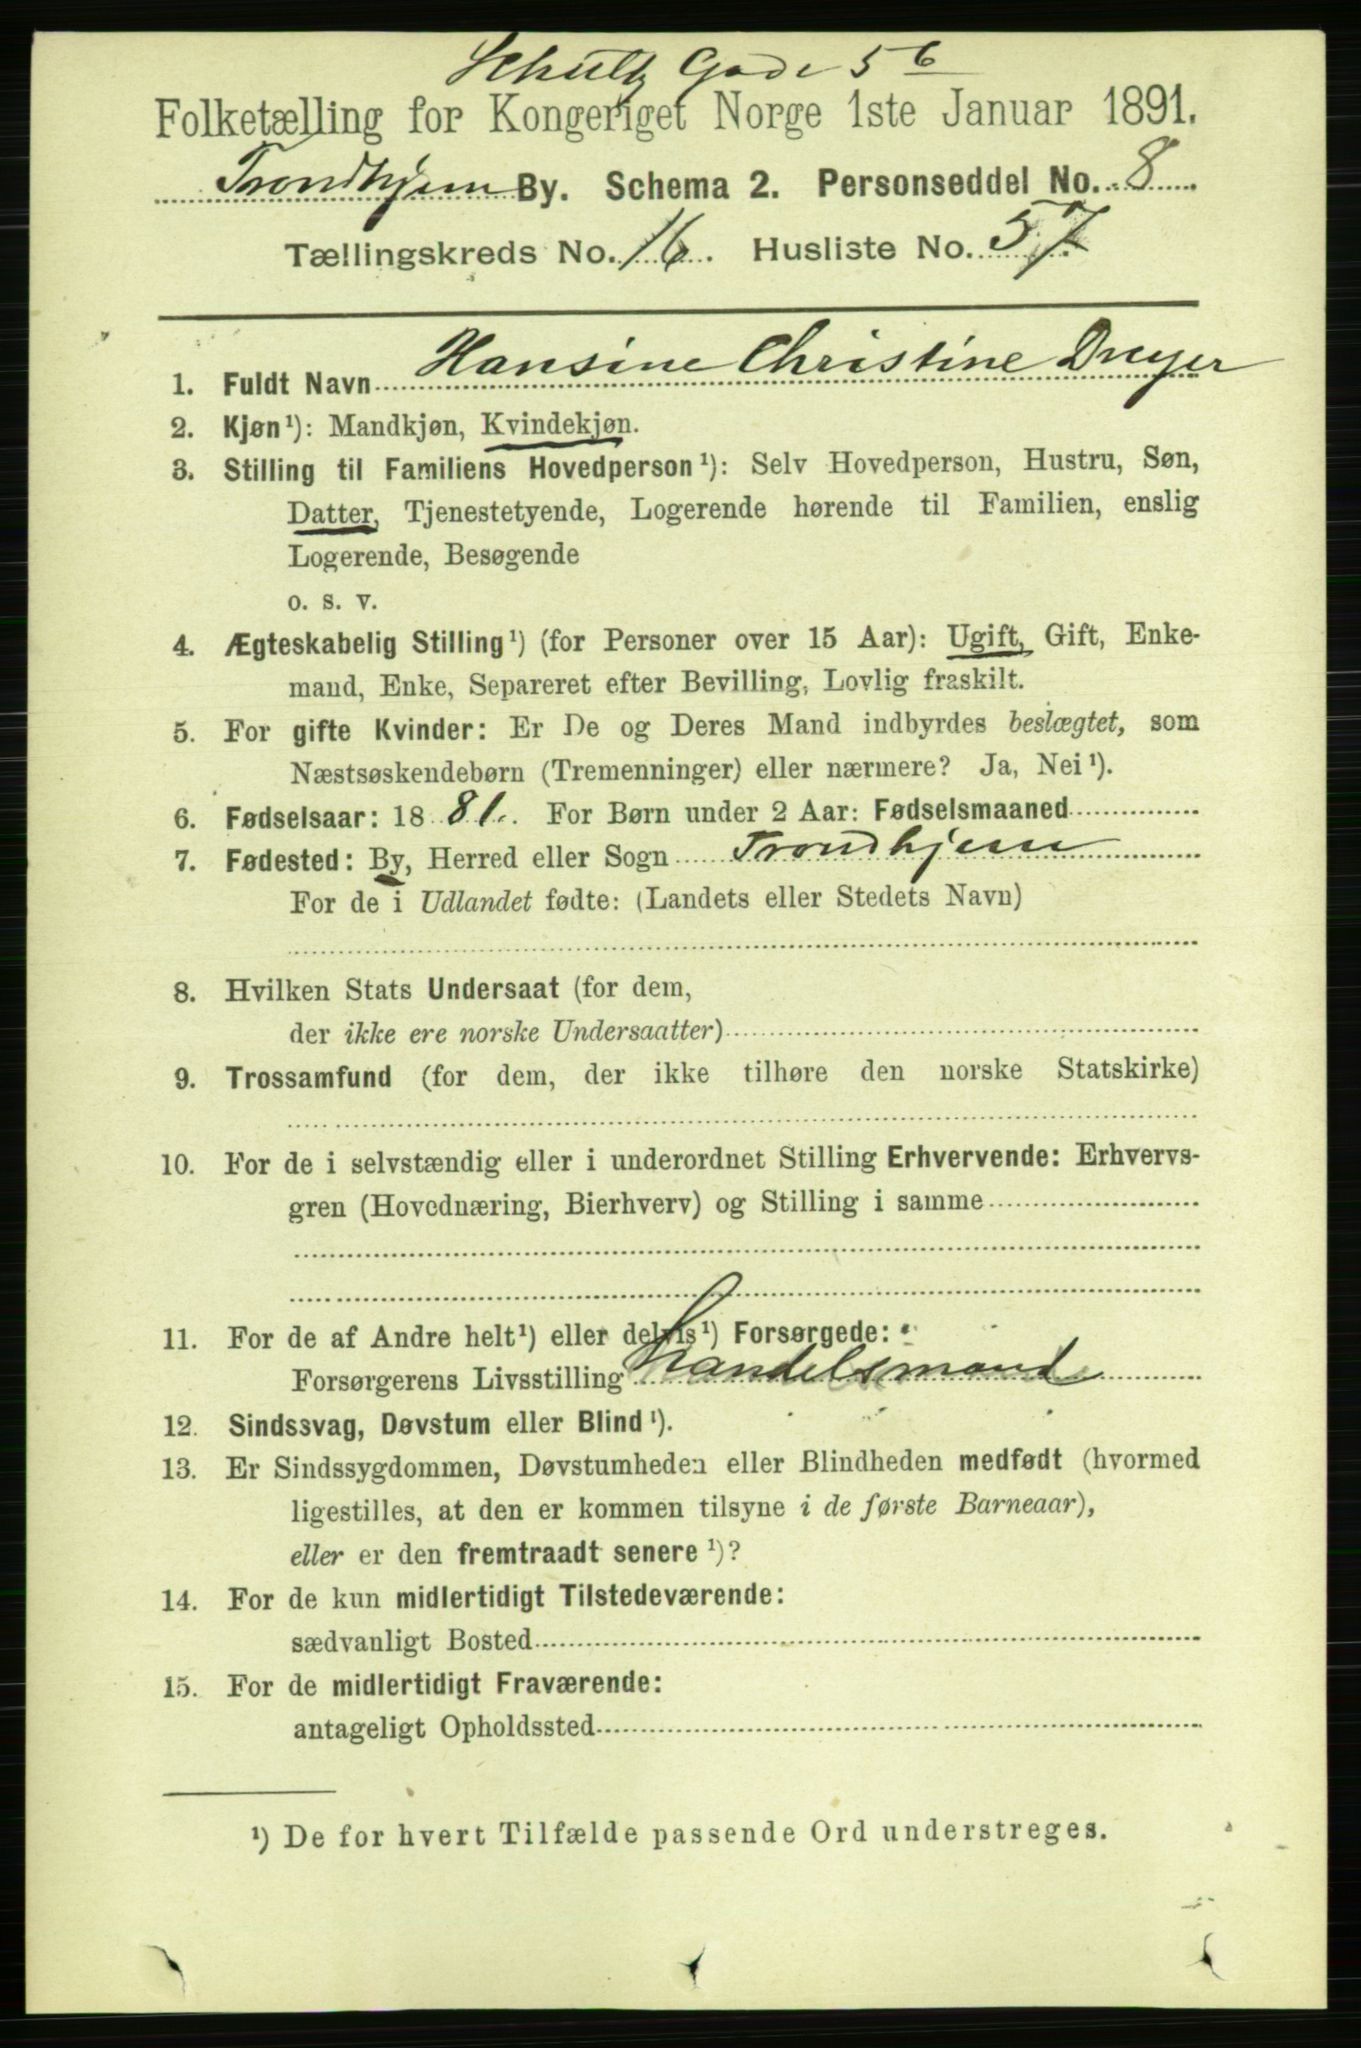 Schultz Gade 5 b
Folketælling for Kongeriget Norge 1ste Januar 1891.
Trondhjem By. Schema 2. Personseddel No. 8
Tællingskreds No. 16. Husliste No. 57
1. Fuldt Navn Hansine Christine Dreyer
2. Kjøn¹): Mandkjøn, Kvindekjøn.
3. Stilling til Familiens Hovedperson¹): Selv Hovedperson, Hustru, Søn,
Datter, Tjenestetyende, Logerende hørende til Familien, enslig
Logerende, Besøgende
o. s. v.
4. Ægteskabelig Stilling¹) (for Personer over 15 Aar): Ugift, Gift, Enke-
mand, Enke, Separeret efter Bevilling, Lovlig fraskilt.
5. For gifte Kvinder: Er De og Deres Mand indbyrdes beslægtet, som
Næstsøskendebørn (Tremenninger) eller nærmere? Ja, Nei¹).
6. Fødselsaar: 1881. For Børn under 2 Aar: Fødselsmaaned
7. Fødested: By, Herred eller Sogn Trondhjem
For de i Udlandet fødte: (Landets eller Stedets Navn)
8. Hvilken Stats Undersaat (for dem,
der ikke ere norske Undersaatter)
9. Trossamfund (for dem, der ikke tilhøre den norske Statskirke)
10. For de i selvstændig eller i underordnet Stilling Erhvervende: Erhvervs-
gren (Hovednæring, Bierhverv) og Stilling i samme
11. For de af Andre helt¹) eller delvis¹) Forsørgede:
Forsørgerens Livsstilling Handelsmand
12. Sindssvag, Døvstum eller Blind¹).
13. Er Sindssygdommen, Døvstumheden eller Blindheden medfødt (hvormed
ligestilles, at den er kommen tilsyne i de første Barneaar),
eller er den fremtraadt senere¹)?
14. For de kun midlertidigt Tilstedeværende:
sædvanligt Bosted
15. For de midlertidigt Fraværende:
antageligt Opholdssted
¹) De for hvert Tilfælde passende Ord understreges.